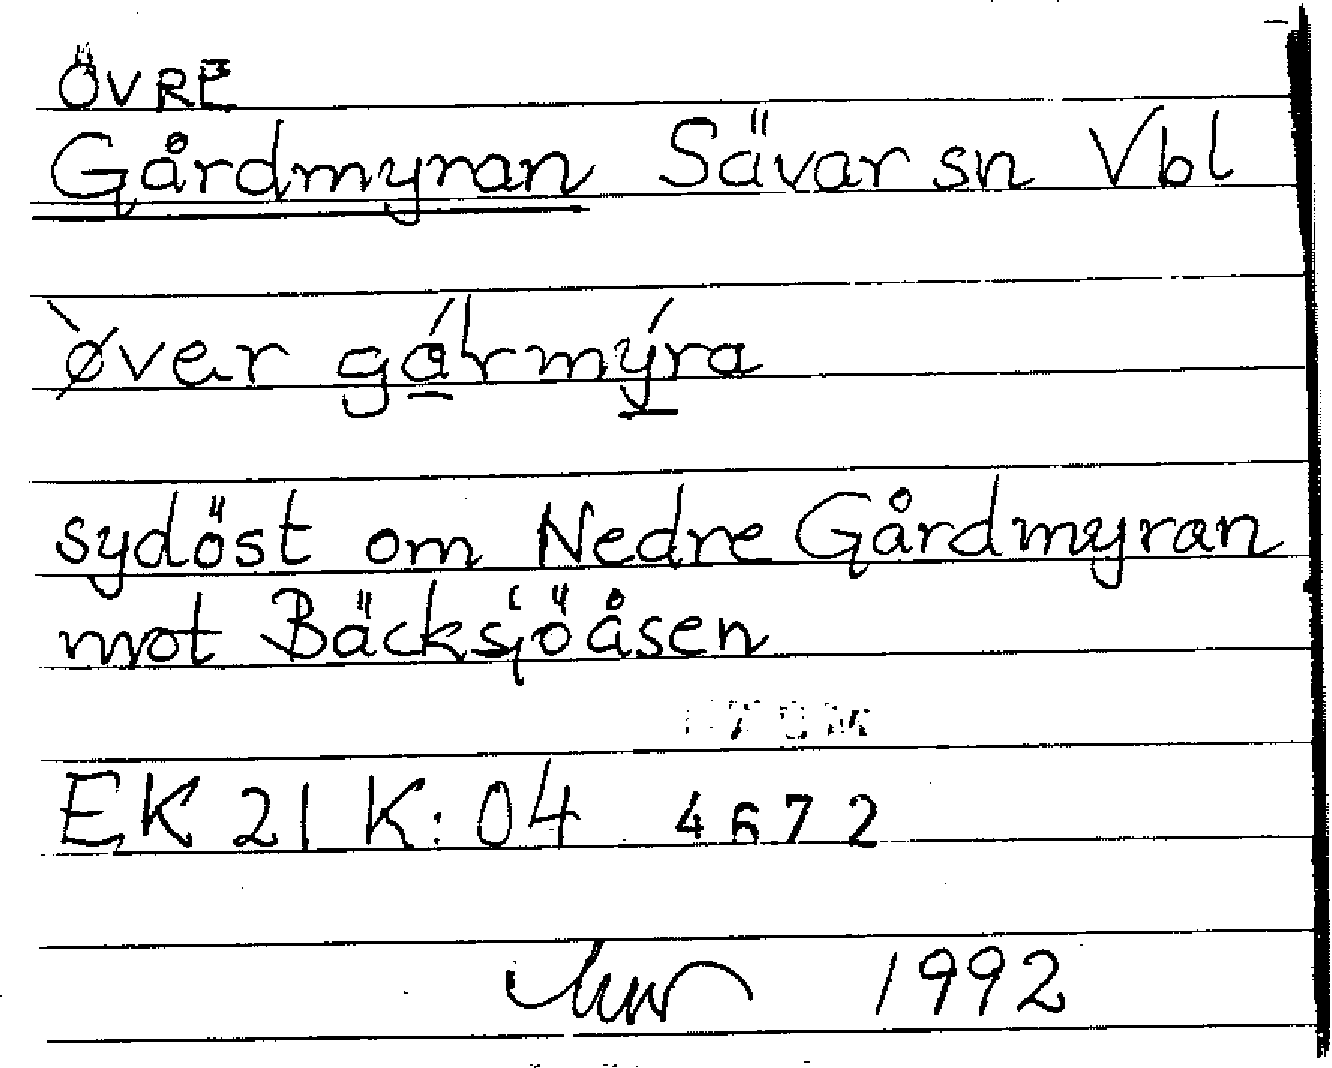 ÖVRE
Gårdmyran Sävar sn Vbl
ø̀ver gá̱ɫrmý̱ra
sydöst om Nedre Gårdmyran
mot Bäcksjöåsen
EK 21 K: 04 4672
1992